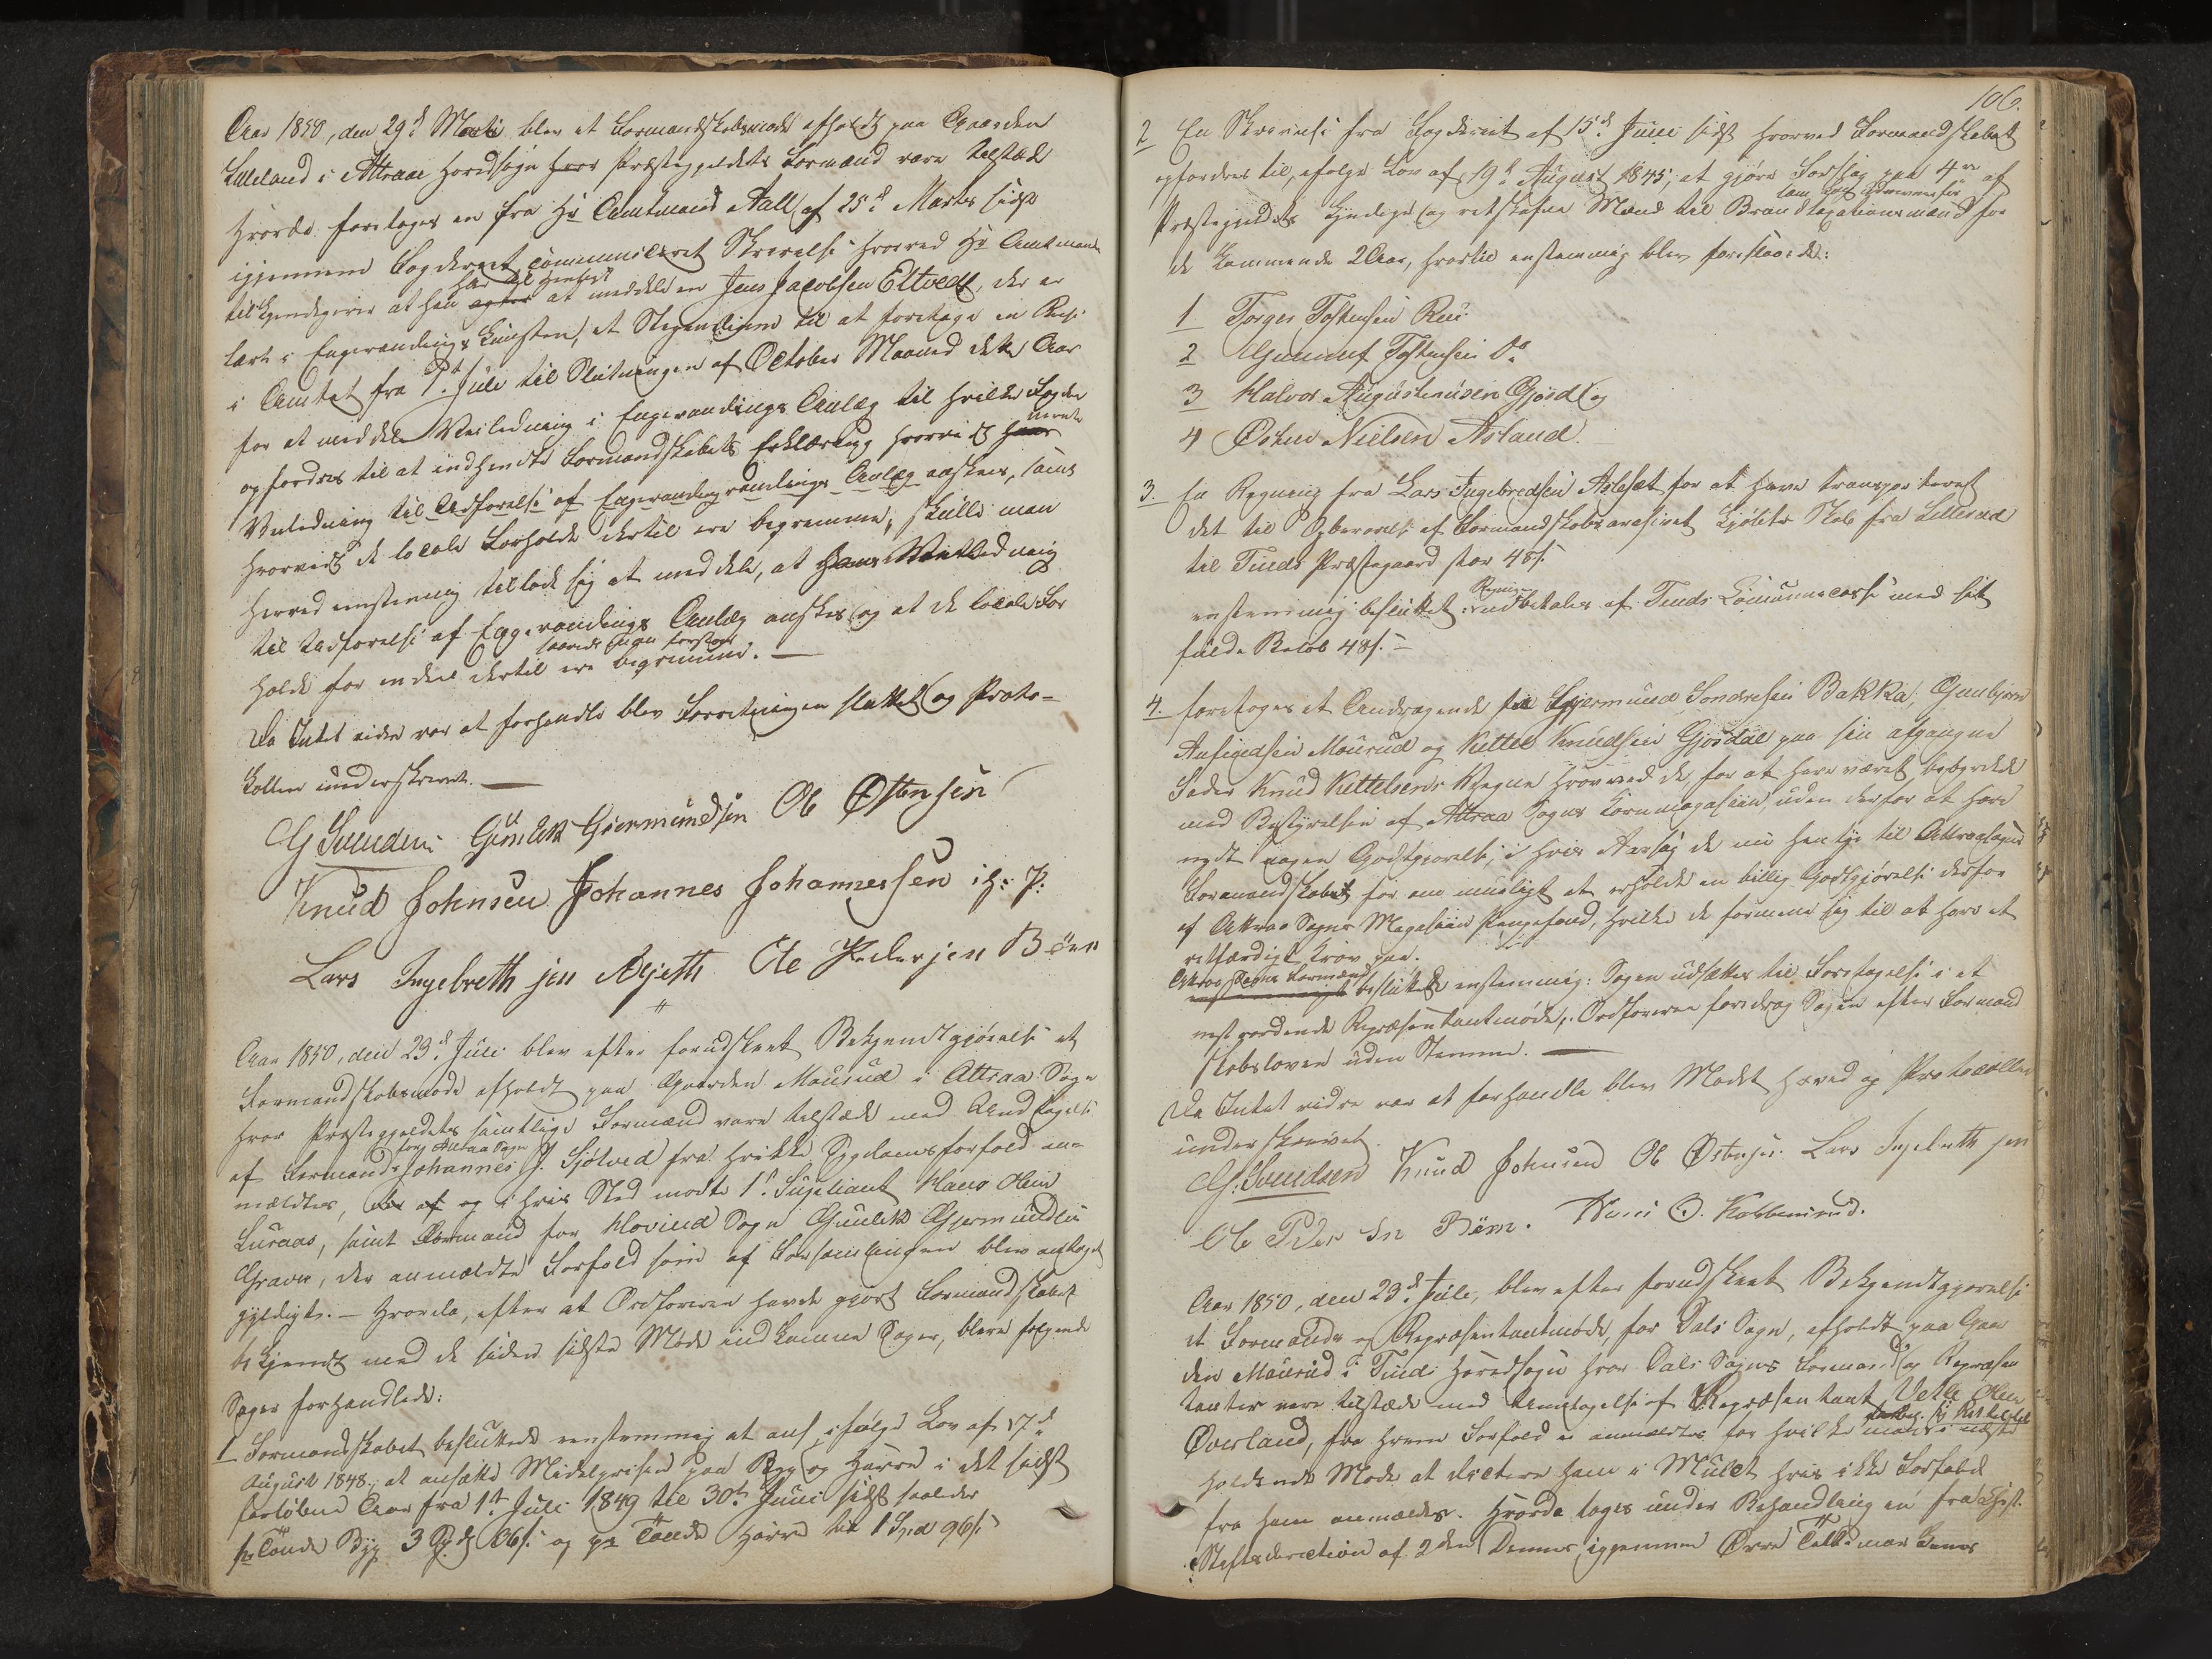 Aar 1850, den 29d Martii blev et Formandskabsmøde afholdt paa Gaarden
Lilleland i Attraae Hovedsogn hvor Præstegjeldets Formænd vare tilstæde
Hvorda foretoges en fra Hr Amtmand Aall af 25d Marts sidst
igjennem Fogderiet communiceret Skrivelse hvorved Hr Amtmand
tilkjendegiver at han har til Hensigt at meddele en Jens Jacobsen Eltvedt, der er
lært i Engevandings Kunsten, et Stipendium til at foretage en Reise
i Amtet fra 1st Juli til Slutningen af October Maaned dette Aar
for at meddele Veiledning i Engevandings Anlæg til hvilke Fogden
opfordres til at indhente Formandskabets Erklæring hvorvidt
Veiledning til Udførelse af Engevandings Anlæg ønskes, samt
hvorvidt de locale Forholde dertil ere beqvemme, skulle man
herved enstemmig tillade sig at meddele, at hans Veiledning
til Udførelse af Engevandings Anlæg ønskes og at de locale For
holde for en deel dertil ere beqvemme. —
Da Intet videre var at forhandle blev Forretningen sluttet og Proto-
kollen underskrevet. —
G Svendsen Gunlek Gjermundsen Ole Østensen
Knud Johnsen Johannes Johannessen i. h. P.
Lars Ingebreth sen Ole Pedersen Børn
Aar 1850, den 23d Juli blev efter forudskeet Bekjendtgjørelse et
Formandskabsmøde afholdt paa Gaarden Maurud i Attraa Sogn
hvor Præstegjeldets samtlige Formænd vare tilstæde med Undtagelse
af Formand for Attraa Sogn Johannes J. Sjøtved fra hvilke Sygdomsforfald an-
meldtes, og i hvis Sted mødte 1st Supleant Hans Olsen
Luraas, samt Formand for Hovind Sogn Gunlek Gjermundsen
Graver, der anmeldte Forfald som af Forsamlingen blev antaget
gyldigt. — Hvorda, efter at Ordføreren havde gjort Formandskabet
bekjendt med de siden sidste Møde indkomne Sager, bleve følgende
Sager forhandlede:
1 Formandskabet besluttede eenstemmig at ifølge Lov af 17d
August 1848, at ansætte Midelprisen paa Byg og Havre i det sidst
forløbne Aar fra 1st Juli 1849 til 30te Juni sidst saaledes
pr Tønde Byg 3 Spd 66 s. og pr Tønde Havre til 1 Spd 96 s.
106.
2 En Skrivelse fra Fogderiet af 15d Juni sidst hvorved Formandskabet
opfordres til, ifølge Lov af 19d August 1845, at gjøre Forslag paa 4re af
Præstegjeldets kyndige og retskafne Mænd til Brandtaxationsmænd for
de kommende 2 Aar, hvortil enstemmig blev foreslaaede:
1 Torger Tostensen Rui
2 Gunnuf Tostensen Do
3 Halvor Augustinusen Gjøsdl og
4 Østen Nielsen Asland
3. En Regning fra Lars Ingebredsen Aslesæt for at have transporteret
det til Opbevarelse af Formandskabsarchivet kjøbte Skab fra Lillerud
til Tinds Præstegaard stor 48 s.
enstemmig besluttet: Regningen udbetales af Tinds Comunecasse med sit
fulde Beløb 48 s. —
4. foretoges et Andragende fra Gjermund Sondresen Bakka, Gunbjørn
Ansteensen Maurud og Kittel Knudsen Gjøsdal paa sin afgangne
Fader Knud Kittelsens Vegne hvorved de, for at have været bebyrdede
med Bestyrelsen af Attraa Sogns Kornmagasiin uden derfor at have
nydt nogen Godtgjørelse, i hvis Aarsag de nu hentye til Attraasogns
Formandskabet for om muligt at erholde en billig Godtgjørelse derfor
af Attraa Sogns Magasiin Pengefond, hvilke de formene sig til at have et
retfærdigt Krav paa.
Attraa Sogns Formænd besluttede enstemmig: Sagen udsættes til Foretagelse i et
nest vordende Repræsentantmøde. Ordføreren foredrog Sagen efter Formand
skabsloven uden Stemme. —
Da Intet videre var at forhandle blev Mødet hævet og Protocollen
underskrevet.
G. Svendsen Knud Johnsen Ole Østensen Lars Ingebreth sen
Ole Peder sn Børn. Hans O.
Aar 1850, den 23d Juli, blev efter forudskeet Bekjendtgjørelse
et Formands og Repræsentantmøde, for Dals Sogn, afholdt paa Gaar
den Maurud i Tinds Hovedsogn hvor Dals Sogns Formænd og Repræsen
tanter vare tilstæde med Undtagelse af Repræsentant Vetle Olsen
Øverland, fra hvem Forfald ei anmeldtes for hvilke næste
holdende Møde at dictere ham i Mulct hvis ikke Forfald
fra ham anmeldes. Hvorda toges under Behandling en fra Christ.
Stiftsdirection af 2den Dennes, igjennem Øvre Tellemarkens